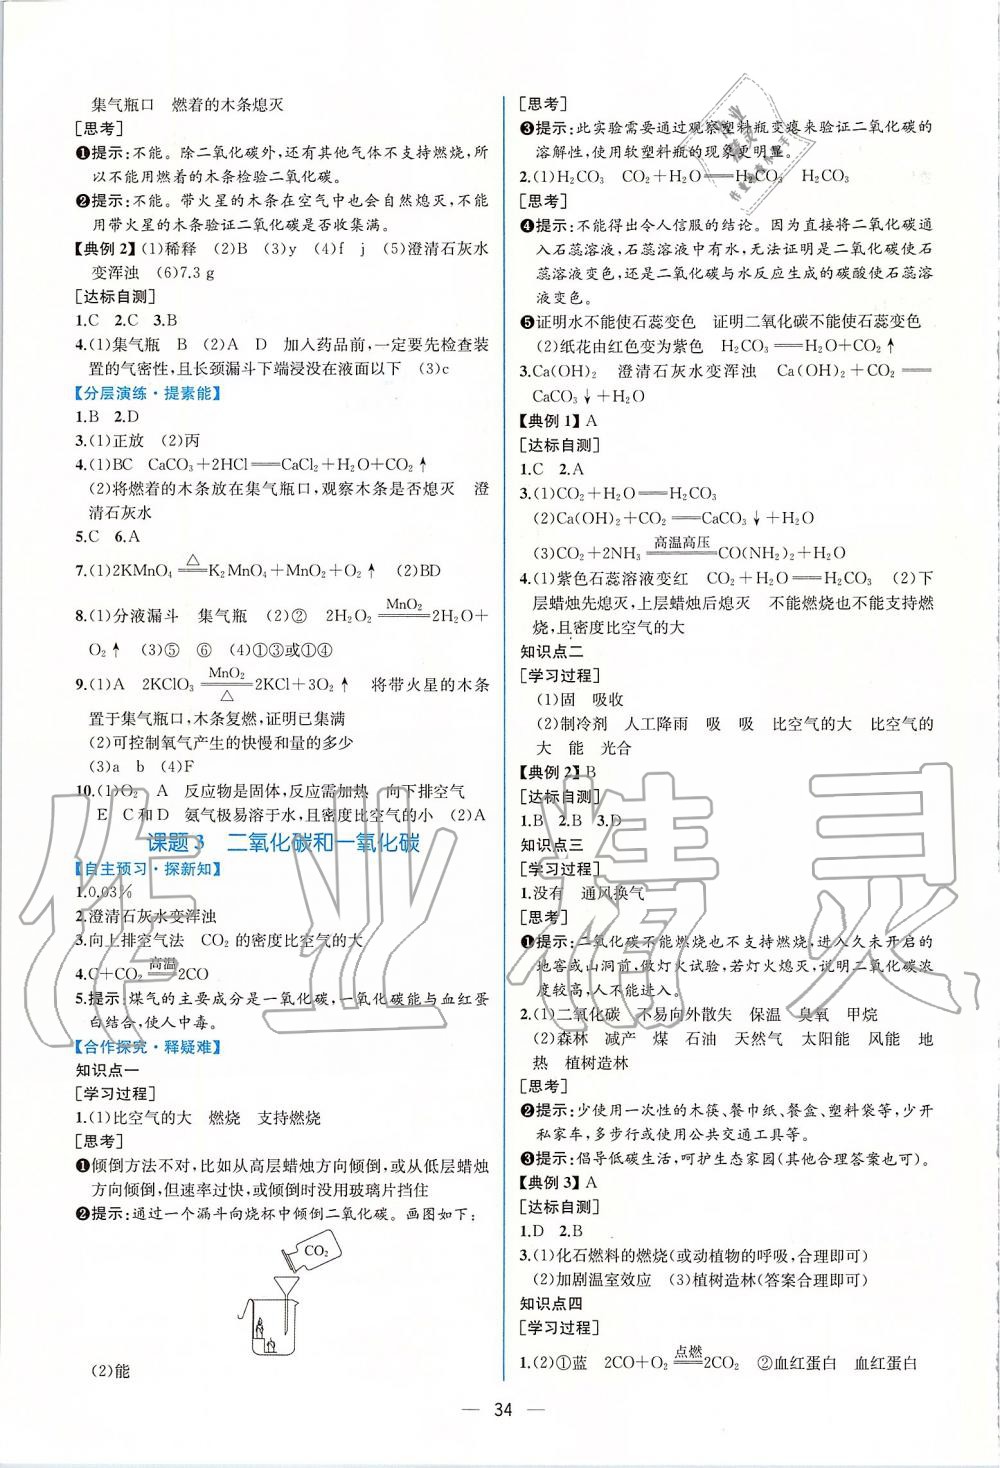 集气瓶口　燃着的木条熄灭
[思考]
❶提示:不能。除二氧化碳外,还有其他气体不支持燃烧,所
以不能用燃着的木条检验二氧化碳。
❷提示:不能。带火星的木条在空气中也会自然熄灭,不能
用带火星的木条验证二氧化碳是否收集满。
【典例2】(1)稀释　(2)B　(3)y　(4)f　j　(5)澄清石灰水
变浑浊　(6)7.3 g
[达标自测]
1.C　2.C　3.B
4.(1)集气瓶　B　(2)A　D　加入药品前,一定要先检查装
置的气密性,且长颈漏斗下端浸没在液面以下　(3)c
【分层演练·提素能】
1.B　2.D
3.(1)正放　(2)丙
4.(1)BC　CaCO₃+2HCl══CaCl₂+H₂O+CO₂↑
(2)将燃着的木条放在集气瓶口,观察木条是否熄灭　澄
清石灰水
5.C　6.A
7.(1)2KMnO₄ ══△ K₂MnO₄+MnO₂+O₂↑　(2)BD
8.(1)分液漏斗　集气瓶　(2)②　2H₂O₂ ══MnO₂ 2H₂O+
O₂↑　(3)⑤　⑥　(4)①③或①④
9.(1)A　2KClO₃ ══MnO₂ △ 2KCl+3O₂↑　将带火星的木条
置于集气瓶口,木条复燃,证明已集满
(2)可控制氧气产生的快慢和量的多少
(3)a　b　(4)F
10.(1)O₂　A　反应物是固体,反应需加热　向下排空气
E　C和D　氨气极易溶于水,且密度比空气的小　(2)A
课题3　二氧化碳和一氧化碳
【自主预习·探新知】
1.0.03%
2.澄清石灰水变浑浊
3.向上排空气法　CO₂的密度比空气的大
4.C+CO₂ ══高温 2CO
5.提示:煤气的主要成分是一氧化碳,一氧化碳能与血红蛋
白结合,使人中毒。
【合作探究·释疑难】
知识点一
[学习过程]
1.(1)比空气的大　燃烧　支持燃烧
[思考]
❶倾倒方法不对,比如从高层蜡烛方向倾倒,或从低层蜡烛
方向倾倒,但速率过快,或倾倒时没用玻璃片挡住
❷提示:通过一个漏斗向烧杯中倾倒二氧化碳。画图如下:
CO₂
(2)能
[思考]
❸提示:此实验需要通过观察塑料瓶变瘪来验证二氧化碳的
溶解性,使用软塑料瓶的现象更明显。
2.(1)H₂CO₃　CO₂+H₂O══H₂CO₃　H₂CO₃
[思考]
❹提示:不能得出令人信服的结论。因为直接将二氧化碳通
入石蕊溶液,石蕊溶液中有水,无法证明是二氧化碳使石
蕊溶液变色,还是二氧化碳与水反应生成的碳酸使石蕊溶
液变色。
❺证明水不能使石蕊变色　证明二氧化碳不能使石蕊变色
(2)纸花由红色变为紫色　H₂CO₃══H₂O+CO₂↑
3.Ca(OH)₂　澄清石灰水变浑浊　Ca(OH)₂+CO₂══
CaCO₃↓+H₂O
【典例1】A
[达标自测]
1.C　2.A
3.(1)CO₂+H₂O══H₂CO₃
(2)Ca(OH)₂+CO₂══CaCO₃↓+H₂O
(3)CO₂+2NH₃ ══高温高压 CO(NH₂)₂+H₂O
4.(1)紫色石蕊溶液变红　CO₂+H₂O══H₂CO₃　(2)下
层蜡烛先熄灭,上层蜡烛后熄灭　不能燃烧也不能支持燃
烧,且密度比空气的大
知识点二
[学习过程]
(1)固　吸收
(2)制冷剂　人工降雨　吸　吸　比空气的大　比空气的
大　能　光合
【典例2】B
[达标自测]
1.B　2.B　3.D
知识点三
[学习过程]
1.没有　通风换气
[思考]
❶提示:二氧化碳不能燃烧也不支持燃烧,进入久未开启的
地窖或山洞前,做灯火试验,若灯火熄灭,说明二氧化碳浓
度较高,人不能进入。
2.(1)二氧化碳　不易向外散失　保温　臭氧　甲烷
(2)森林　减产　煤　石油　天然气　太阳能　风能　地
热　植树造林
[思考]
❷提示:少使用一次性的木筷、餐巾纸、餐盒、塑料袋等,少开
私家车,多步行或使用公共交通工具等。
❸提示:倡导低碳生活,呵护生态家园(其他合理答案也可)。
【典例3】A
[达标自测]
1.D　2.B
3.(1)化石燃料的燃烧(或动植物的呼吸,合理即可)
(2)加剧温室效应　(3)植树造林(答案合理即可)
知识点四
[学习过程]
1.(2)①蓝　2CO+O₂ ══点燃 2CO₂　②血红蛋白　血红蛋白
— 34 —
作业精灵